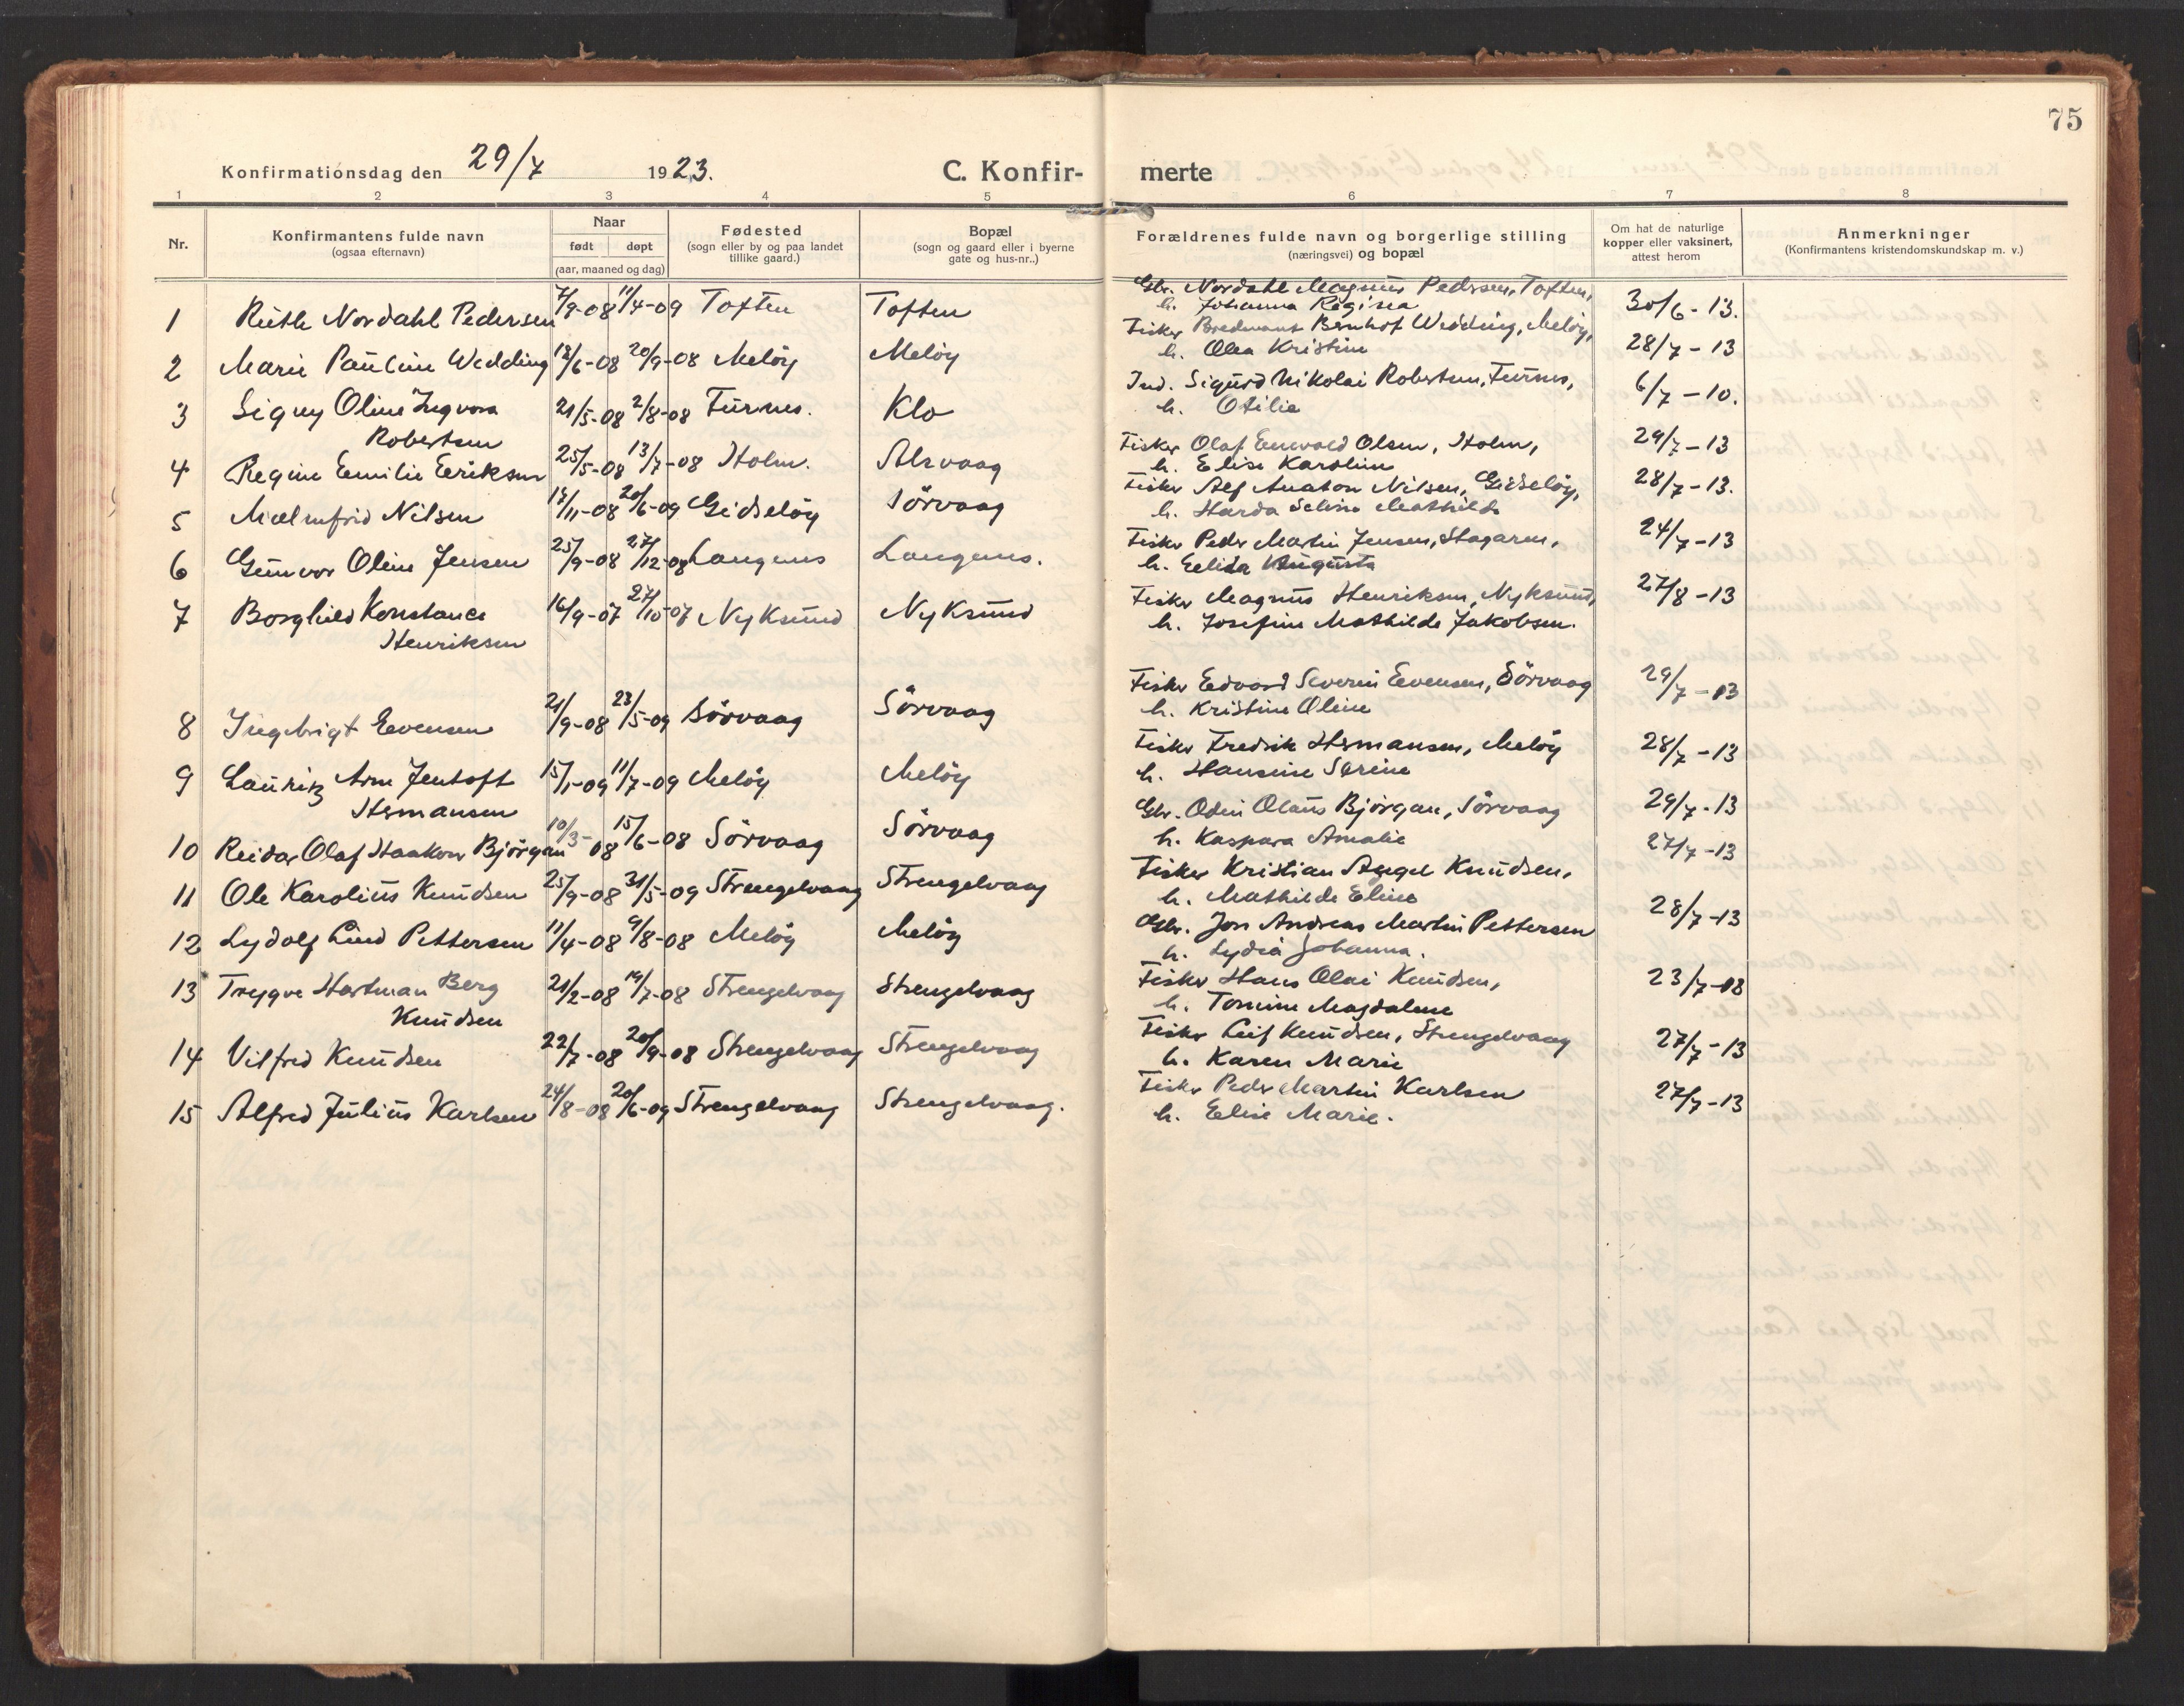 75
Konfirmationsdag den 29/7 1923. C. Konfir- merte
1 2 3 4 5 6 7 8
Nr.
Konfirmantens fulde navn
(ogsaa efternavn)
Naar
født døpt
(aar, maaned og dag)
Fødested
(sogn eller by og paa landet
tillike gaard.)
Bopæl
(sogn og gaard eller i byerne
gate og hus-nr..)
Forældrenes fulde navn og borgerlige stilling
(næringsvei) og bopæl
Om hat de naturlige
kopper eller vaksinert,
attest herom
Anmerkninger
(Konfirmantens kristendomskundskap m. v.)
1 Ruth Nordahl Pedersen 7/9-08 11/4-09 Toften Toften Gbr. Nordahl Magnus Pedersen, Toften, 30/6-13.
h. Johanna Regina
2 Marie Pauline Wedding 12/6-08 20/9-08 Meløy Meløy Fisker Bernhof Wedding, Meløy, 28/7-13
h. Olea Kristine
3 Signy Oline Ingvora 21/5-08 2/8-08 Furnes. Klo Ind. Sigurd Nikolai Robertsen, Furnes, 6/7-10.
Robertsen h. Otilie
4 Regine Emilie Eriksen 25/5-08 13/7-08 Holm. Alsvaag Fisker Olaf Enevold Olsen, Holm, 29/7-13
h. Elise Karoline
5 Malmfrid Nilsen 17/11-08 20/6-09 Gidsløy Sörvaag Fisker Alf Anaton Nilsen, Gidsløy, 28/7-13.
h. Harda Seline Mathilde
6 Gunvor Oline Jensen 25/9-08 27/12-08 Langenes Langenes. Fisker Peder Martin Jensen, Skagaren, 24/7-13
h. Elida Augusta
7 Borghild Konstance 16/9-07 27/10-07 Nyksund Nyksund Fisker Magnus Henriksen, Nyksund, 27/8-13
Henriksen h. Josefine Mathilde Jakobsen.
8 Ingebrigt Evensen 21/9-08 23/5-09 Sörvaag Sörvaag Fisker Edvard Severin Evensen, Sörvaag 29/7-13
h. Kristine Oline
9 Lauritz Arne Jentoft 15/1-09 11/7-09 Meløy Meløy Fisker Fredrik Hermansen, Meløy 28/7-13
Hermansen h. Hansine Serine
10 Reidar Olaf Haakon Björgan 10/3-08 15/6-08 Sörvaag Sörvaag Gbr. Odin Olaus Björgan, Sörvaag 29/7-13
h. Kaspara Amalie
11 Ole Karolius Knudsen 25/9-08 31/5-09 Strengelvaag Strengelvaag Fisker Kristian Angel Knudsen, 27/7-13
h. Mathilde Eline
12 Lydolf Lind Pettersen 11/4-08 9/8-08 Meløy Meløy Gbr. Jon Andreas Martin Pettersen 28/7-13
h. Lydia Johanna.
13 Trygve Hartman Berg 21/2-08 19/7-08 Strengelvaag Strengelvaag Fisker Hans Olai Knudsen, 23/7-08
Knudsen h. Tomine Magdalene
14 Vilfred Knudsen 22/7-08 20/9-08 Strengelvaag Strengelvaag Fisker Leif Knudsen, Strengelvaag 27/7-13
h. Karen Marie
15 Alfred Julius Karlsen 24/8-08 20/6-09 Strengelvaag Strengelvaag. Fisker Peder Martin Karlsen 27/7-13
h. Elise Marie.